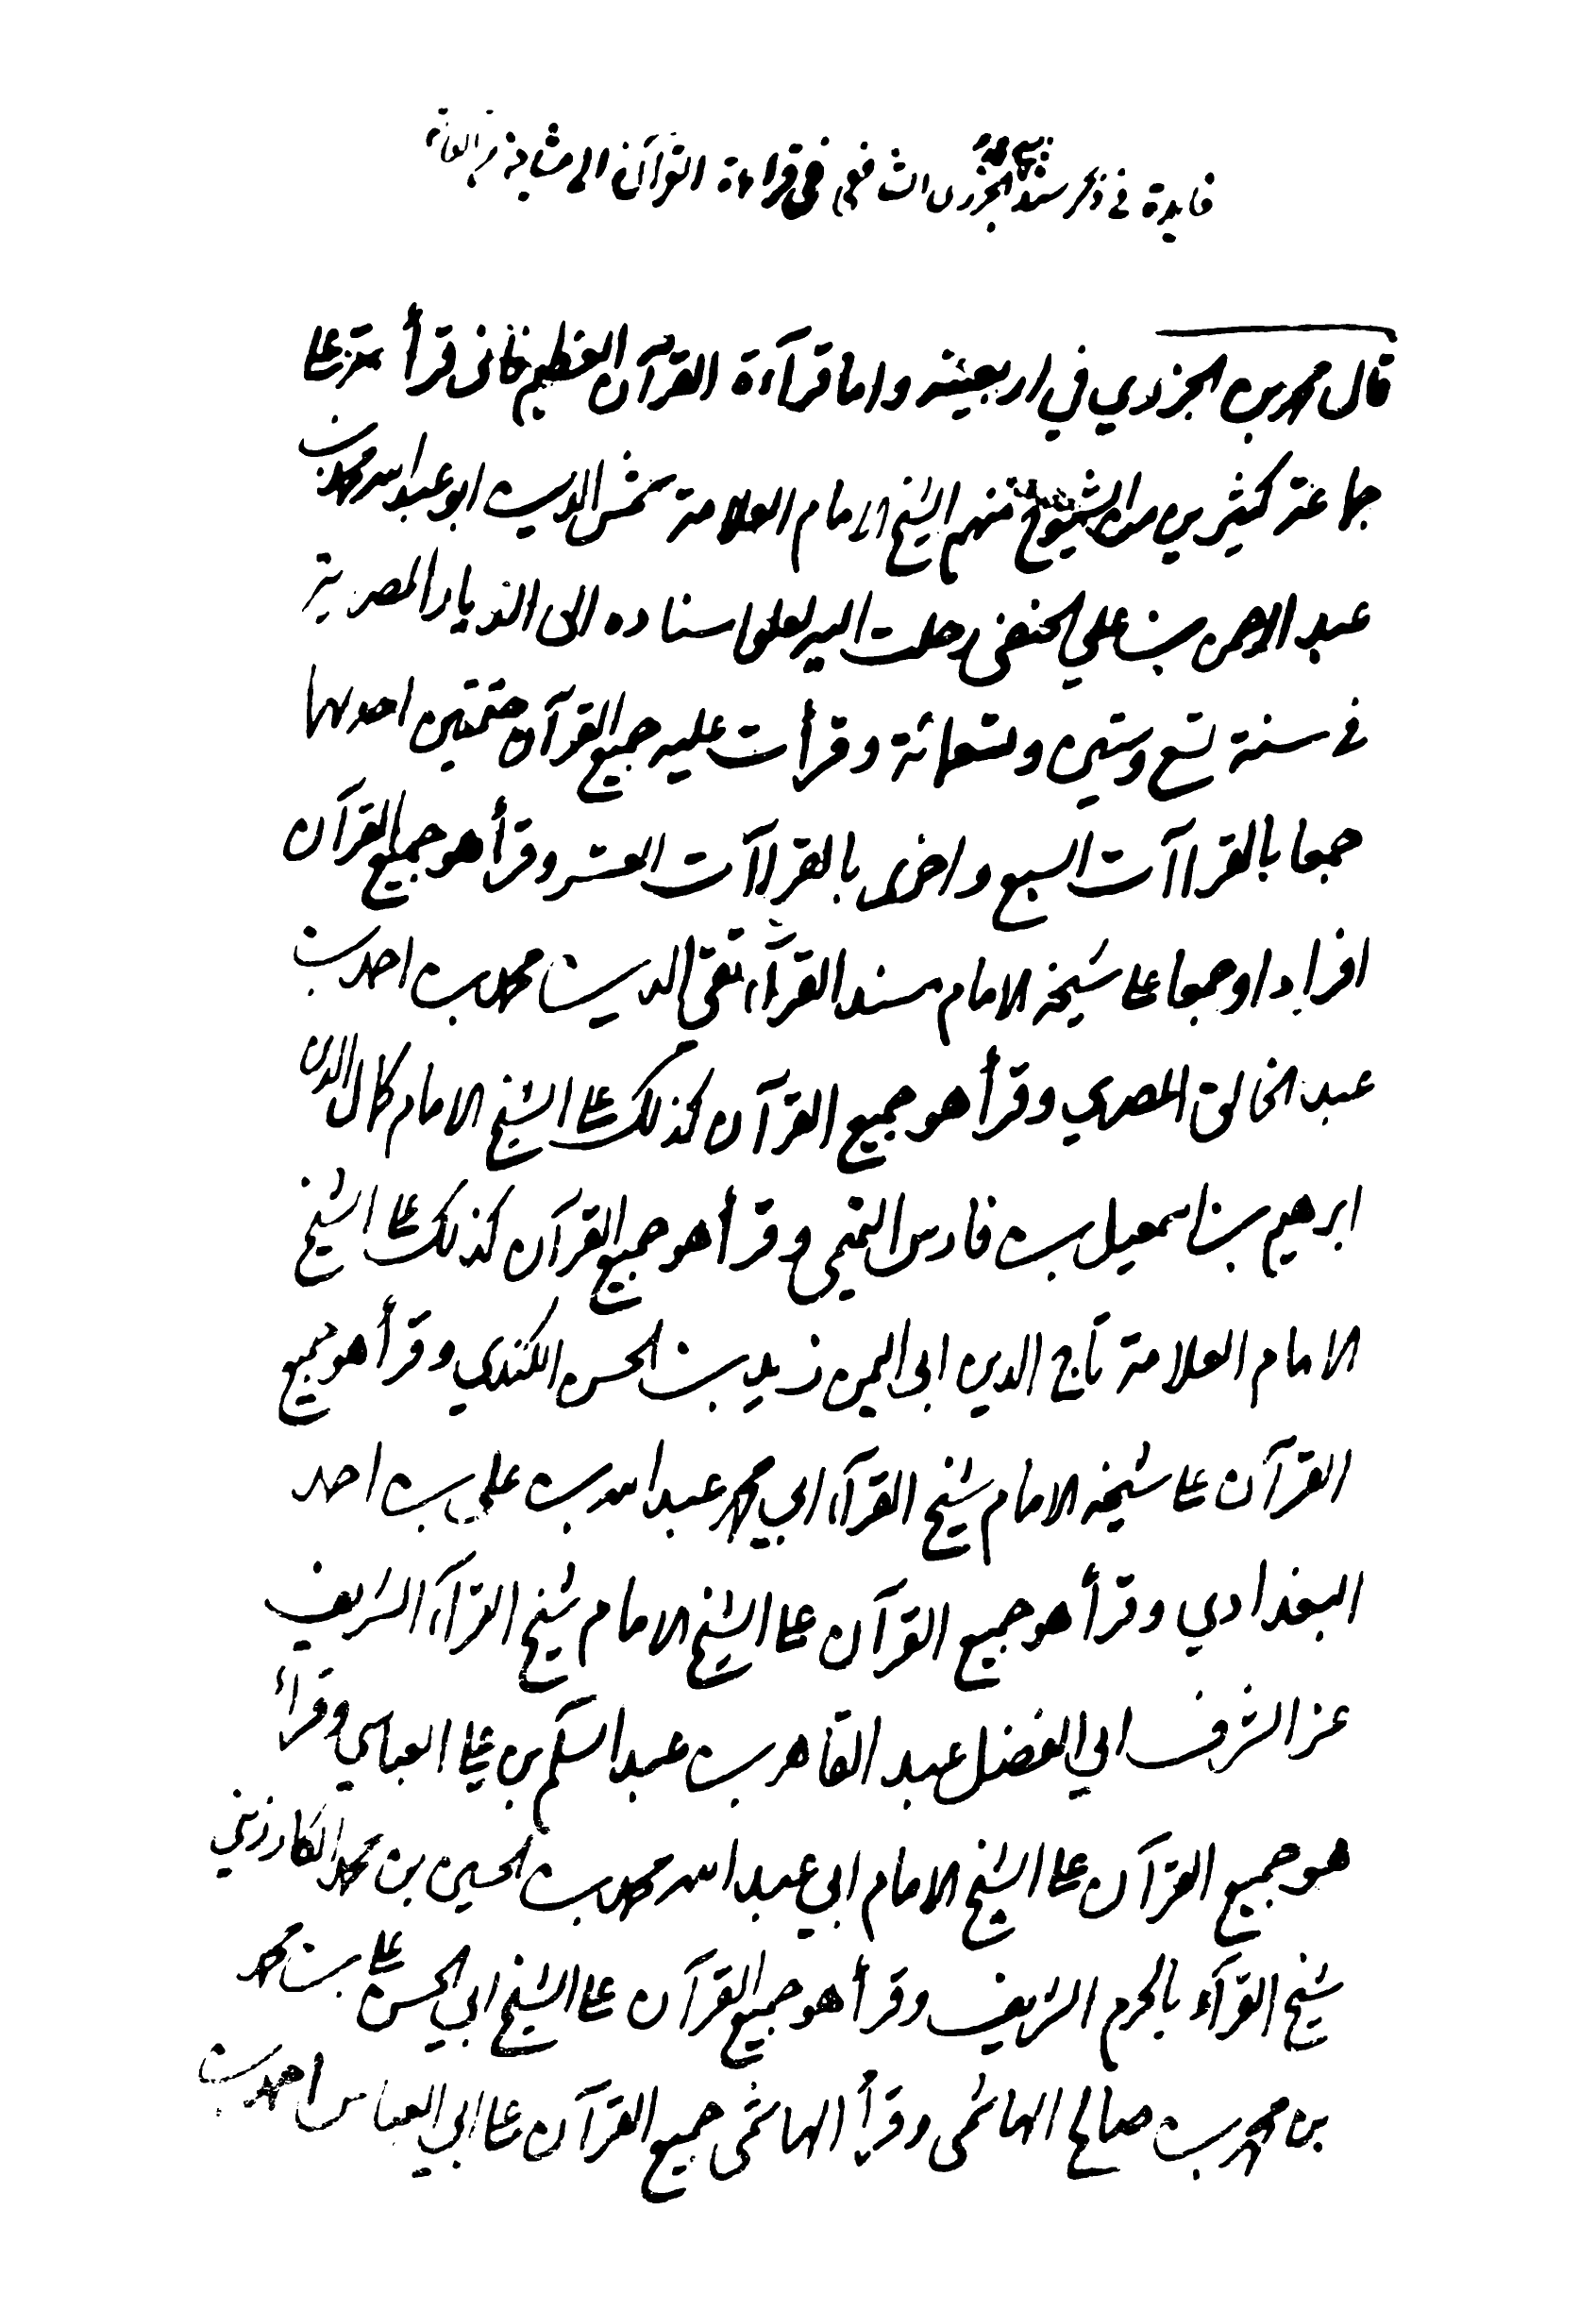 فايدة في ذكر سند الجزري الشافعي في قراءة القرآن الى مشايخه
قال محمد بن الجزري في اربعينه واما قرآءة القرآن العظيم فانى قرأته على
جماعة كثيرين من الشيوخ منهم الشيخ الامام العلامة شمس الدين ابو عبد الله محمد بن
عبد الرحمن بن علي الحنفى رحلت اليه لعلو اسناده الى الديار المصرية
في سنة تسع وستين وسبعمائة وقرأت عليه جميع القرآن ختمتين احدىهما
جمعا بالقراآت السبع واخرى بالقراآت العشر وقرأ هو جميع القرآن
افرادا وجمعا على شيخه الامام مسند القرآء تقى الدين محمد بن احمد بن
عبد الخالق المصري وقرأ هو جميع القرآن كذلك على الشيخ الامام كمال الدين
ابرهيم بن اسمعيل بن فارس التميمى وقرأ هو جميع القرآن كذلك على الشيخ
الامام العلامة تاج الدين ابى اليمن زيد بن الحسن الكندي وقرأ هو جميع
القرآن على شيخه الامام شيخ القرآء ابي محمد عبد الله بن علي بن احمد
البغدادي وقرأ هو جميع القرآن على الشيخ الامام شيخ القرآء الشريف
عز الشرف ابي الفضل عبد القاهر بن عبد السلم بن على العباسي وقرأ
هو جميع القرآن على الشيخ الامام ابي عبد الله محمد بن الحسين بن محمد الكارزيني
شيخ القرآء بالحرم الشريف وقرأ هو جميع القرآن على الشيخ ابي الحسن على بن محمد
بن محمد بن صالح الهاشمى وقرأ الهاشمى جميع القرآن على ابي العباس احمد بن